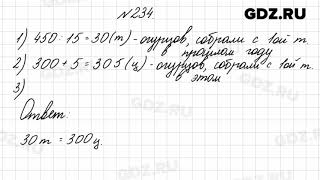 GDZ.RU
№234.
1) 450 : 15 = 30 (т) - огурцов, собрали с 1ой т.
в прошлом году
2) 300 + 5 = 305 (ц) - огурцов, собрали с 1ой т.
в этом
3)
Ответ:
30 т = 300 ц.